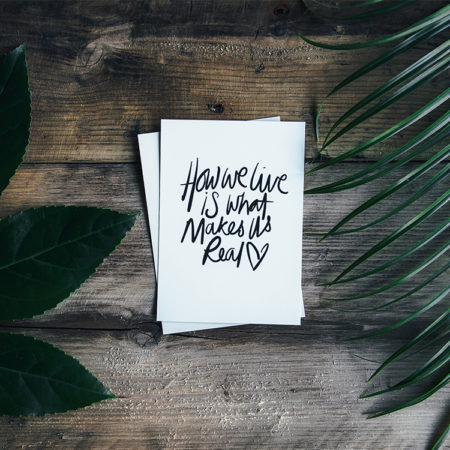 How we live
is what
Makes Us
Real ♡